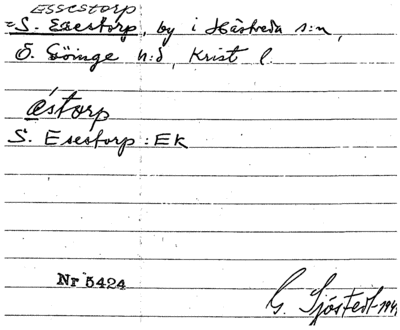 Essestorp
=S. Esestorp, by i Hästveda s:n,
Ö. Göinge h:d, Krist l.
estorp
S. Esestorp : EK
Nr 5424
G. Sjöstedt